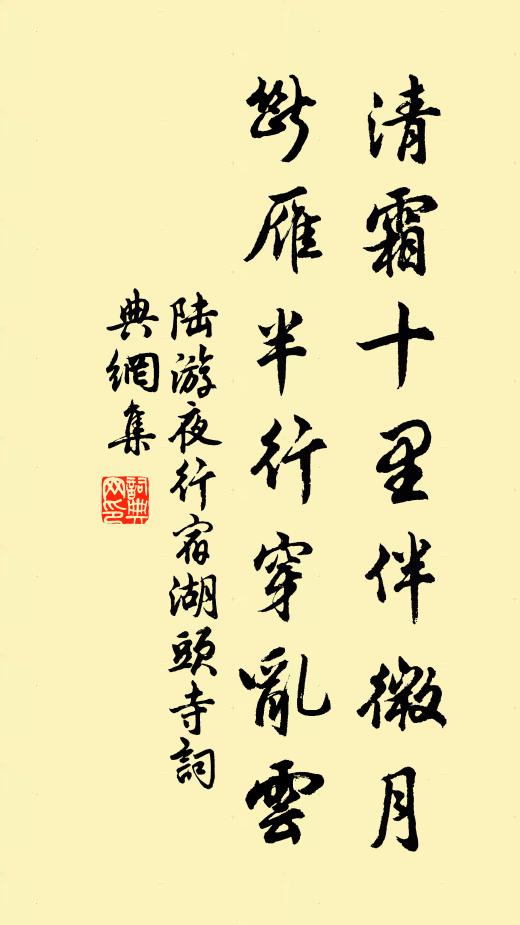 清霜十里伴微月
斷雁半行穿亂雲
陆游夜行宿湖頭寺詞
典網集
詞典网印